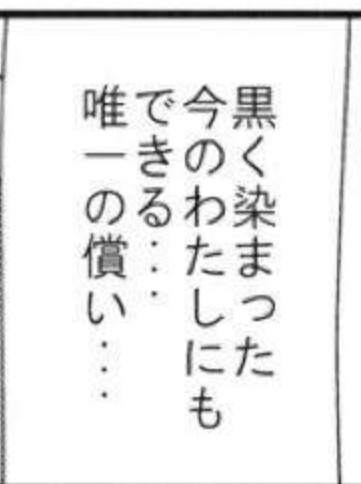 黒く染まった
今のわたしにも
できる･･･
唯一の償い･･･